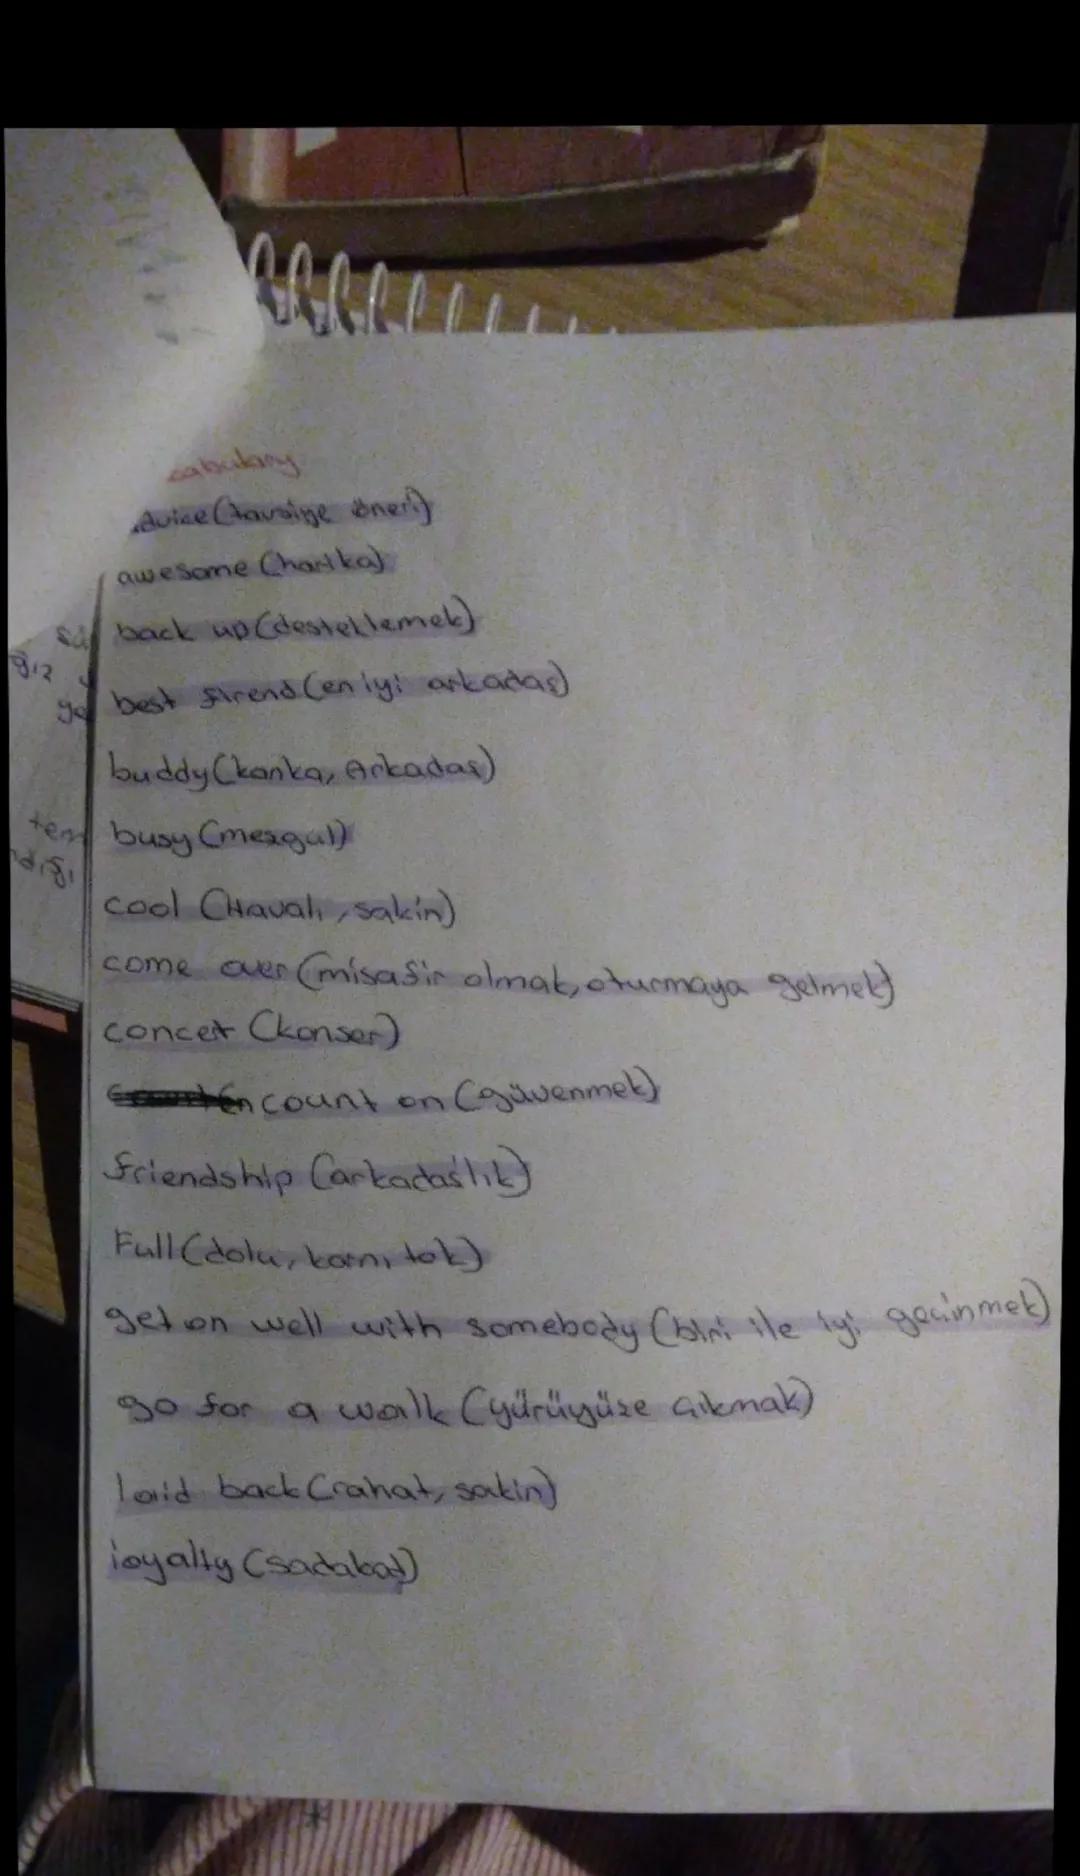 cabulary
dvice (tavsiye öneri)
awesome (harika)
back up (desteklemek)
best firend (en iyi arkadaş)
buddy (kanka, Arkadaş)
busy (mesgul)
cool (Havalı, sakin)
come over (misafir olmak, oturmaya gelmek)
concert (konser)
count on (güvenmek)
friendship (arkadaşlık)
Full (dolu, karnı tok)
get on well with somebody (biri ile iyi geçinmek)
go for a walk (yürüyüşe çıkmak)
laid back (rahat, sakin)
loyalty (sadakat)